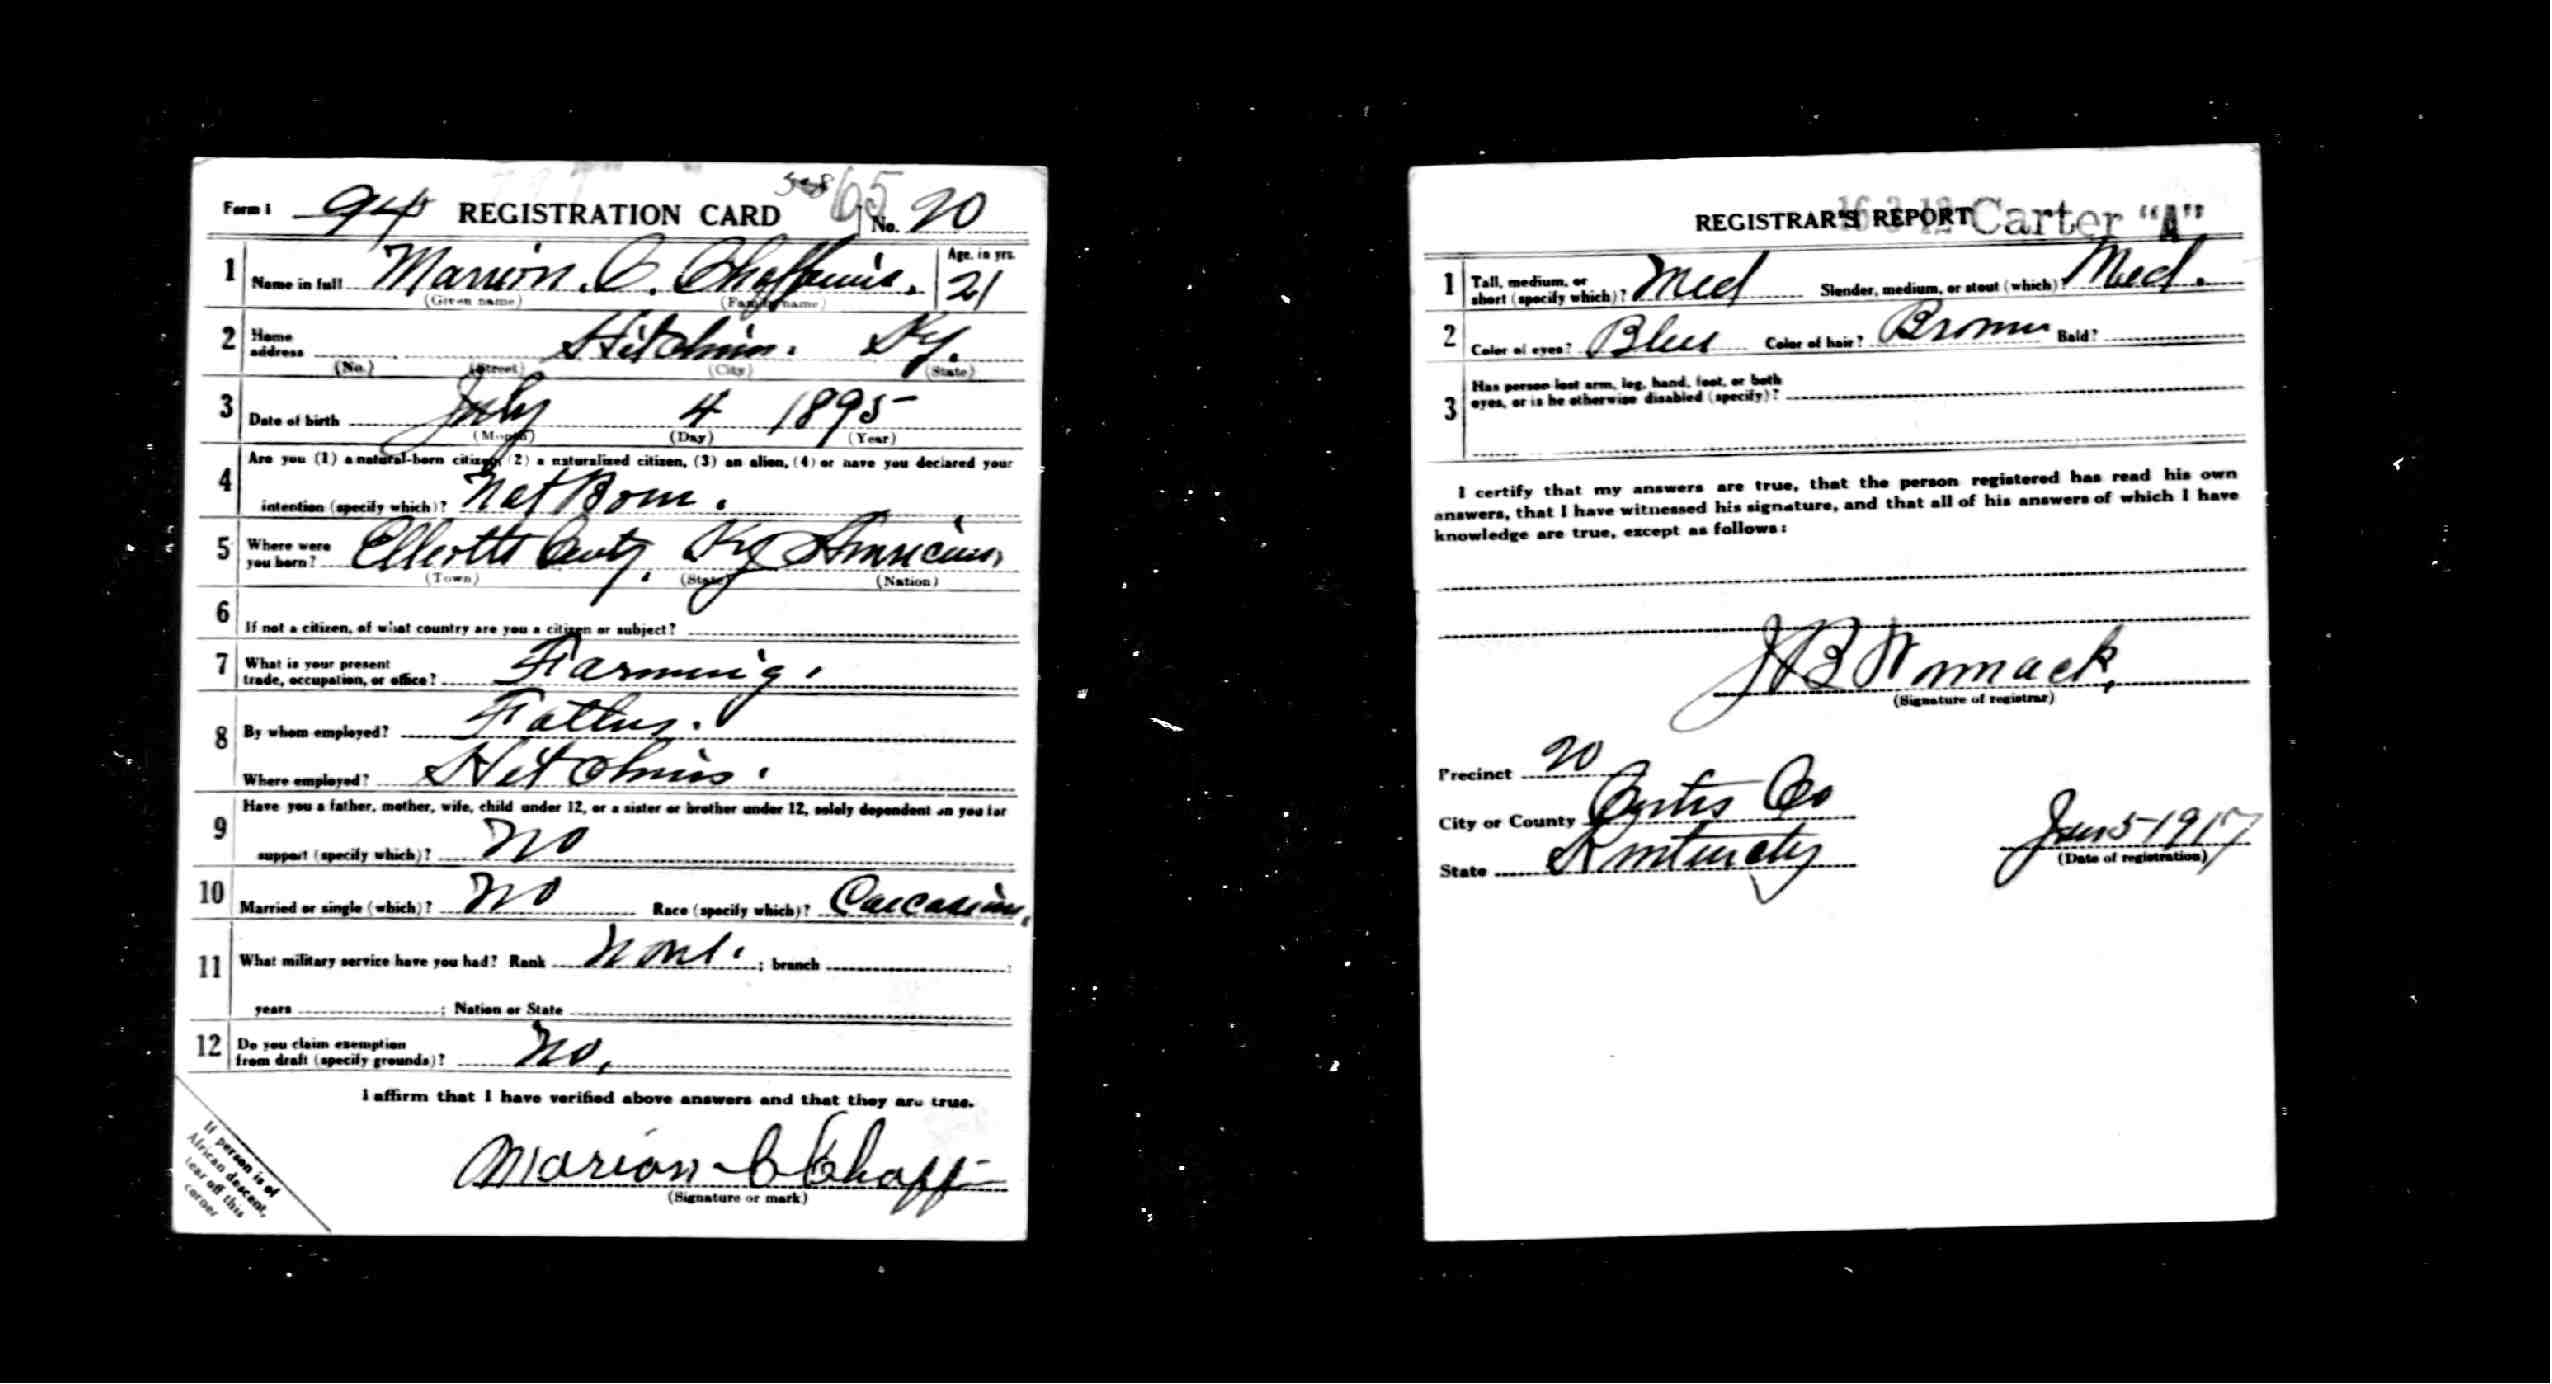 Form 1 94 REGISTRATION CARD 65 No. 20
1 Name in full Marrion. C. Chaffunis. Age, in yrs. 21
(Given name) (Family name)
2 Home address Hitchins. Ky.
(No.) (Street) (City) (State)
3 Date of birth July 4 1895
(Month) (Day) (Year)
4 Are you (1) a natural-born citizen, (2) a naturalized citizen, (3) an alien, (4) or have you declared your
intention (specify which)? Nat Born.
5 Where were you born? Elliott Cuty. Ky American
(Town) (State) (Nation)
6 If not a citizen, of what country are you a citizen or subject?
7 What is your present
trade, occupation, or office? Farming.
8 By whom employed? Father.
Where employed? Hitchins.
9 Have you a father, mother, wife, child under 12, or a sister or brother under 12, solely dependent on you for
support (specify which)? No
10 Married or single (which)? No Race (specify which)? Caucasian.
11 What military service have you had? Rank None. ; branch ;
years ; Nation or State
12 Do you claim exemption
from draft (specify grounds)? No,
I affirm that I have verified above answers and that they are true.
Marion C Chaffin
(Signature or mark)
If person is of
African descent,
tear off this
corner
REGISTRAR'S REPORT 16-3-12 Carter "A"
1 Tall, medium, or
short (specify which)? Med Slender, medium, or stout (which)? Med.
2 Color of eyes? Blue Color of hair? Brown Bald?
3 Has person lost arm, leg, hand, foot, or both
eyes, or is he otherwise disabled (specify)?
I certify that my answers are true, that the person registered has read his own
answers, that I have witnessed his signature, and that all of his answers of which I have
knowledge are true, except as follows:
J B Womack,
(Signature of registrar)
Precinct 20
City or County Carter Co
State Kentucky
Jun 5 1917
(Date of registration)